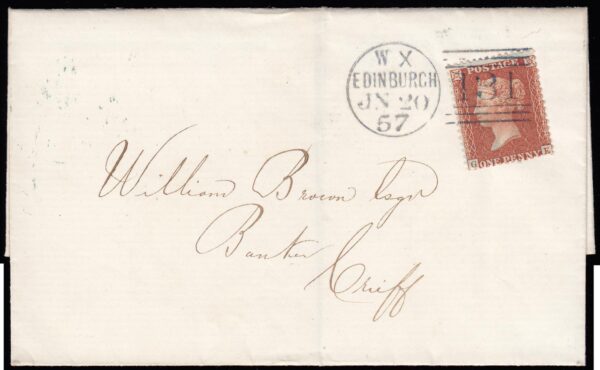 W X
EDINBURGH
JN 20
57
131
POSTAGE
ONE PENNY
William Brown Esqr
Banker
Crieff